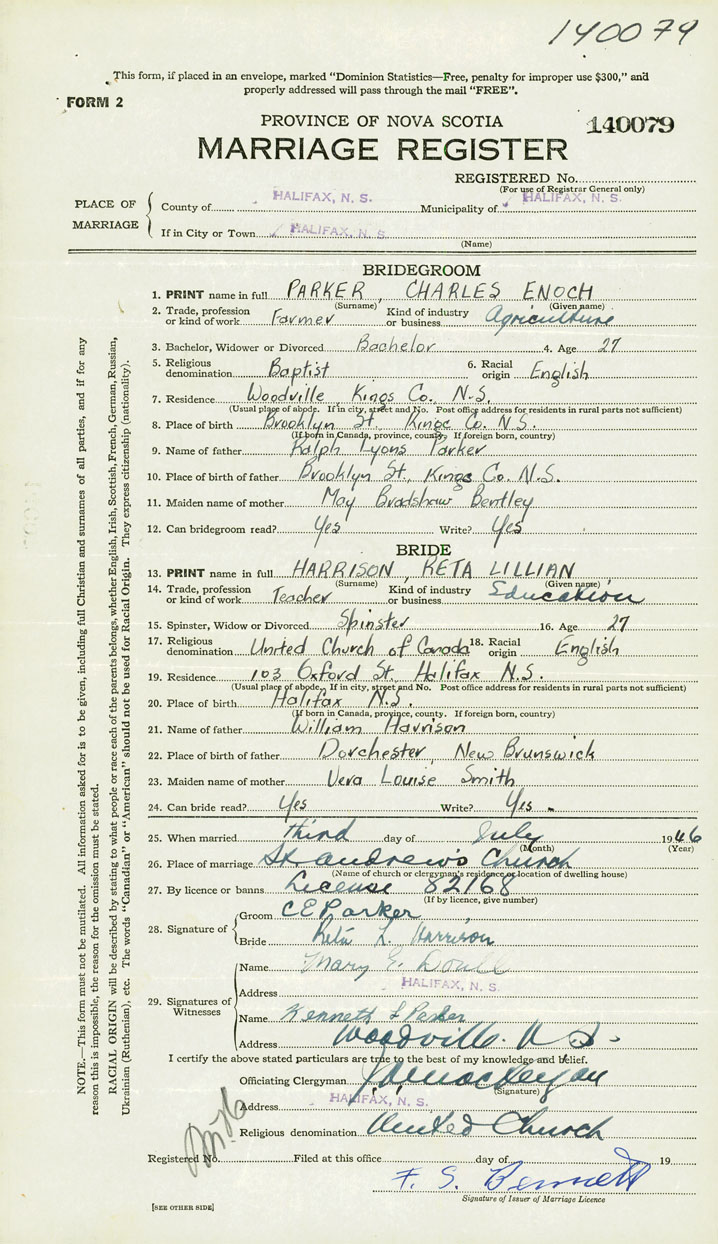 140079
This form, if placed in an envelope, marked "Dominion Statistics—Free, penalty for improper use $300," and
properly addressed will pass through the mail "FREE".
FORM 2
PROVINCE OF NOVA SCOTIA
140079
MARRIAGE REGISTER
REGISTERED No.
(For use of Registrar General only)
PLACE OF MARRIAGE
County of HALIFAX, N. S. Municipality of HALIFAX, N. S.
If in City or Town HALIFAX, N. S.
(Name)
BRIDEGROOM
1. PRINT name in full PARKER, CHARLES ENOCH
(Surname) (Given name)
2. Trade, profession or kind of work Farmer Kind of industry or business Agriculture
3. Bachelor, Widower or Divorced Bachelor 4. Age 27
5. Religious denomination Baptist 6. Racial origin English
7. Residence Woodville, Kings Co. N.S.
(Usual place of abode. If in city, street and No. Post office address for residents in rural parts not sufficient)
8. Place of birth Brooklyn St., Kings Co. N.S.
(If born in Canada, province, county. If foreign born, country)
9. Name of father Ralph Lyons Parker
10. Place of birth of father Brooklyn St., Kings Co. N.S.
11. Maiden name of mother May Bradshaw Bentley
12. Can bridegroom read? Yes Write? Yes
BRIDE
13. PRINT name in full HARRISON, RETA LILLIAN
(Surname) (Given name)
14. Trade, profession or kind of work Teacher Kind of industry or business Education
15. Spinster, Widow or Divorced Spinster 16. Age 27
17. Religious denomination United Church of Canada 18. Racial origin English
19. Residence 103 Oxford St. Halifax N.S.
(Usual place of abode. If in city, street and No. Post office address for residents in rural parts not sufficient)
20. Place of birth Halifax N.S.
(If born in Canada, province, county. If foreign born, country)
21. Name of father William Harrison
22. Place of birth of father Dorchester, New Brunswick
23. Maiden name of mother Vera Louise Smith
24. Can bride read? Yes Write? Yes
25. When married third day of July 1946
(Month) (Year)
26. Place of marriage St. Andrew's Church
(Name of church or clergyman's residence or location of dwelling house)
27. By licence or banns License 82168
(If by licence, give number)
28. Signature of
Groom C E Parker
Bride Reta L. Harrison
29. Signatures of Witnesses
Name Mary E.
Address HALIFAX, N. S.
Name Kenneth L Parker
Address Woodville. N S.
I certify the above stated particulars are true to the best of my knowledge and belief.
Officiating Clergyman
(Signature)
Address HALIFAX, N. S.
Religious denomination United Church
Registered No. Filed at this office day of 19
F. S. Bennett
Signature of Issuer of Marriage Licence
[SEE OTHER SIDE]
NOTE.—This form must not be mutilated. All information asked for is to be given, including full Christian and surnames of all parties, and if for any
reason this is impossible, the reason for the omission must be stated.
RACIAL ORIGIN will be described by stating to what people or race each of the parents belongs, whether English, Irish, Scottish, French, German, Russian,
Ukrainian (Ruthenian), etc. The words "Canadian" or "American" should not be used for Racial Origin. They express citizenship (nationality).